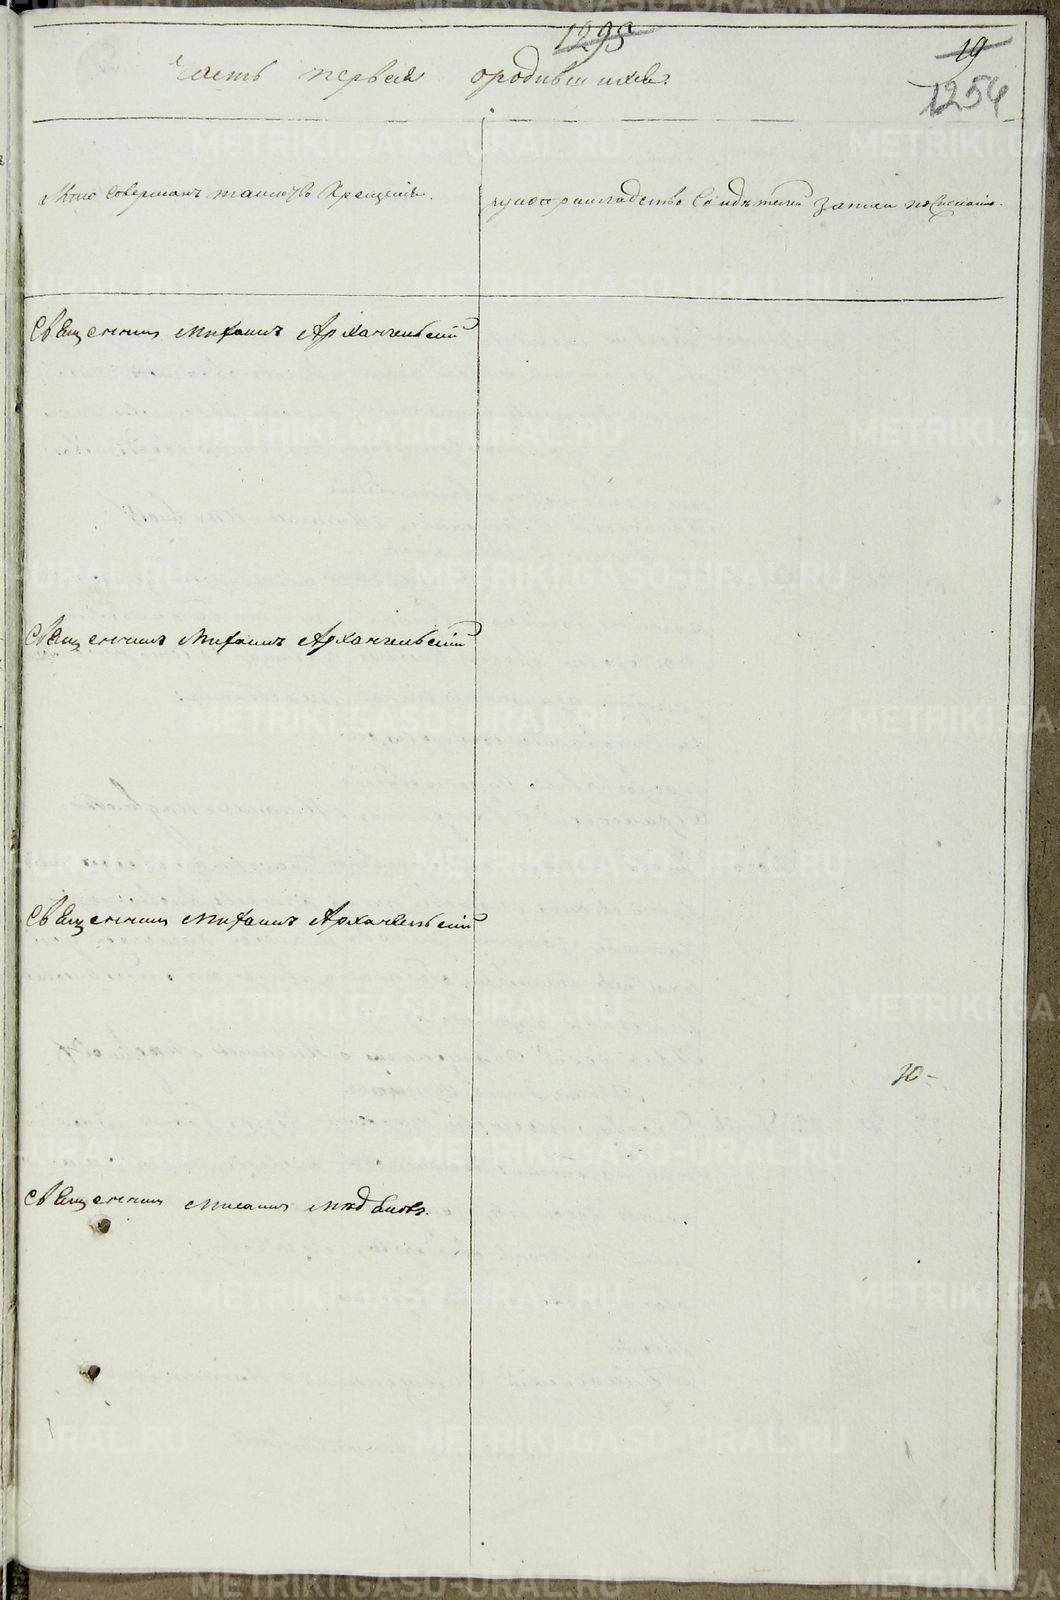 1295
19
часть первая ородившихся.
1254
Кто совершалъ таинство Крещенiя.
рукоприкладство Свидѣтелей записи пожеланiю.
Священникъ Михаилъ Архангельскiй
Священникъ Михаилъ Архангельскiй
Священникъ Михаилъ Архангельскiй
10-
Священникъ Михаилъ
METRIKI.GASO-URAL.RU